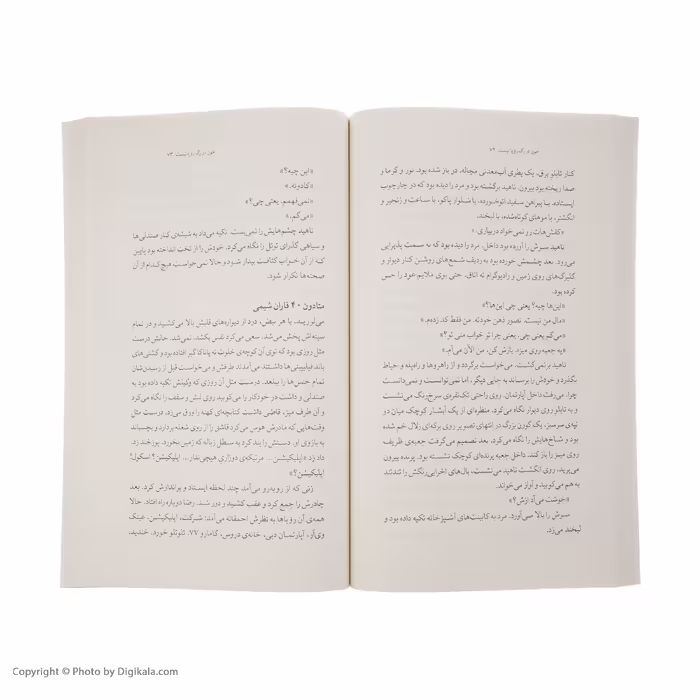 خون در رگ رویا نیست ۷۲
کنار تابلو برق، یک بطری آب‌معدنی مچاله، در باز شده بود. نور و گرما و
صدا ریخته بود بیرون. ناهید برگشته بود و مرد را دیده بود که در چارچوب
ایستاده. با پیراهن سفید اتوخورده، با شلوار پاکو، با ساعت و زنجیر و
انگشتر، با موهای کوتاه‌شده، با لبخند.
«کفش‌هات رو نمی‌خواد دربیاری.»
ناهید سرش را آورده بود داخل. مرد را دیده بود که به سمت پذیرایی
می‌رود. بعد چشمش خورده بود به ردیف شمع‌های روشن کنار دیوار و
گلبرگ‌های روی زمین و رادیوگرام ته اتاق. حتی بوی ملایم عود را حس
کرده بود.
«این‌ها چیه؟ یعنی چی این‌ها؟»
«مال من نیست. تصور ذهن خودته. من فقط کد زدم.»
«می‌گم یعنی چی. یعنی چرا تو خواب منی تو؟»
«یه جعبه روی میزه. بازش کن، من الان می‌آم.»
ناهید برنمی‌گشت. می‌خواست برگردد و از راهروها و راه‌پله و حیاط
بگذرد و خودش را برساند به جایی دیگر، اما نمی‌توانست و نمی‌دانست
چرا. می‌رفت داخل آپارتمان. روی راحتی تک‌نفره‌ی سرخ‌رنگ می‌نشست
و به تابلو روی دیوار نگاه می‌کرد. منظره‌ای از یک آبشار کوچک میان دو
تپه‌ی سرسبز. یک گوزن بزرگ در انتهای تصویر روی برکه‌ای زلال خم شده
بود و شاخ‌هایش را نگاه می‌کرد. بعد تصمیم می‌گرفت جعبه‌ی ظریف
روی میز را باز کند. داخل جعبه پرنده‌ای کوچک نشسته بود. پرنده بیرون
می‌پرید، روی انگشت ناهید می‌نشست، بال‌های اخرایی‌رنگش را تندتند
به هم می‌کوبید و آواز می‌خواند.
«خوشت می‌آد ازش؟»
سرش را بالا می‌آورد. مرد به کابینت‌های آشپزخانه تکیه داده بود و
لبخند می‌زد.
خون در رگ رویا نیست ۷۳
«این چیه؟»
«کادوئه.»
«نمی‌فهمم. یعنی چی؟»
«می‌گم.»
ناهید چشم‌هایش را نمی‌بست. تکیه می‌داد به شیشه‌ی کنار صندلی‌ها
و سیاهی گذرای تونل را نگاه می‌کرد. خودش را از تخت انداخته بود پایین
که از آن خواب کثافت بیدار شود و حالا نمی‌خواست هیچ‌کدام از آن
صحنه‌ها تکرار شود.
متادون ۴۰ فاران شیمی
می‌لرزید. با هر نبض، درد از دیواره‌های قلبش بالا می‌کشید و در تمام
سینه‌اش پخش می‌شد. سعی می‌کرد نفس بکشد. نمی‌شد. حالش درست
مثل روزی بود که توی آن کوچه‌ی خلوت ته پاناکاگیر افتاده بود و گشتی‌های
باند فیلیپینی‌ها داشتند می‌آمدند طرفش و می‌خواست قبل از رسیدن‌شان
تمام جنس‌ها را ببلعد. درست مثل آن روزی که وکیلش تکیه داده بود به
صندلی و داشت در خودکار را می‌کوبید روی لبش و سقف را نگاه می‌کرد
و آن طرف میز، قاضی داشت کتابچه‌ای کهنه را ورق می‌زد. درست مثل
وقت‌هایی که مادرش هوس می‌کرد قاشق را از روی شعله بردارد و بچسباند
به بازوی او. دستش را بند کرد به سطل زباله که زمین نخورد. پوزخند زد.
داد زد «اپلیکیشن... مرتیکه‌ی دوزاری هیچی‌ندار... اپلیکیشن؟ اسکول!
اپلیکیشن؟»
زنی که از روبه‌رو می‌آمد چند لحظه ایستاد و براندازش کرد. بعد
چادرش را جمع کرد و عقب کشید و دور شد. رضا دوباره راه افتاد. حالا
همه‌ی آن رؤیاها به نظرش احمقانه می‌آمد: شرکت، اپلیکیشن، عینک
وی‌آر، آپارتمان دبی، خانه‌ی دروس، کامارو ۷۷. تلوتلو خورد. خندید.
Copyright © Photo by Digikala.com